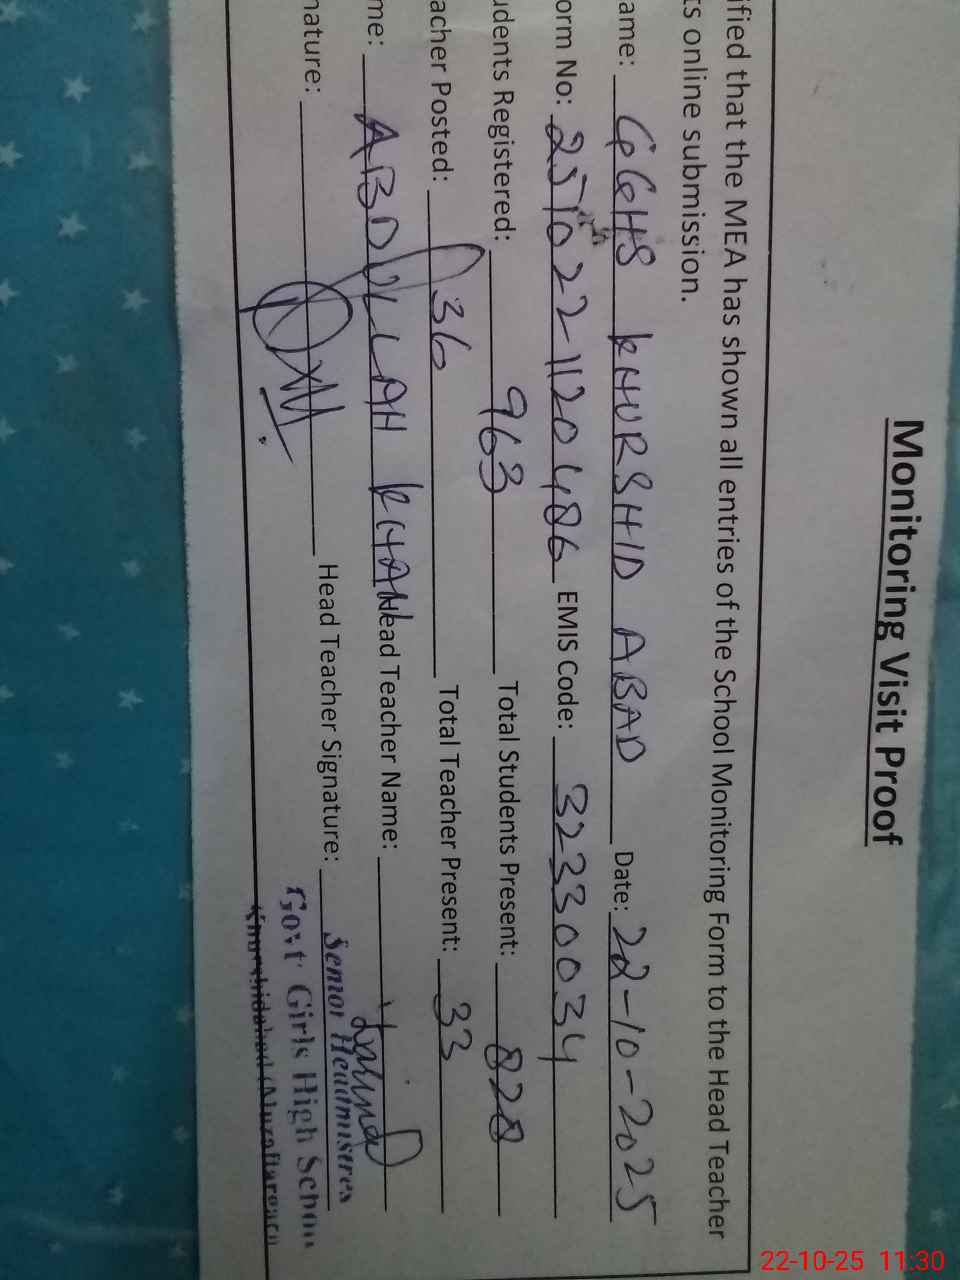 Monitoring Visit Proof
ified that the MEA has shown all entries of the School Monitoring Form to the Head Teacher
ts online submission.
ame: GGHS KHURSHID ABAD Date: 22-10-2025
orm No: 2510221120486 EMIS Code: 32330034
udents Registered: 963 Total Students Present: 828
acher Posted: 36 Total Teacher Present: 33
me: ABDULLAH KHAN ead Teacher Name:
nature: Head Teacher Signature:
Senior Headmistres
Govt Girls High Schoo
22-10-25 11:30